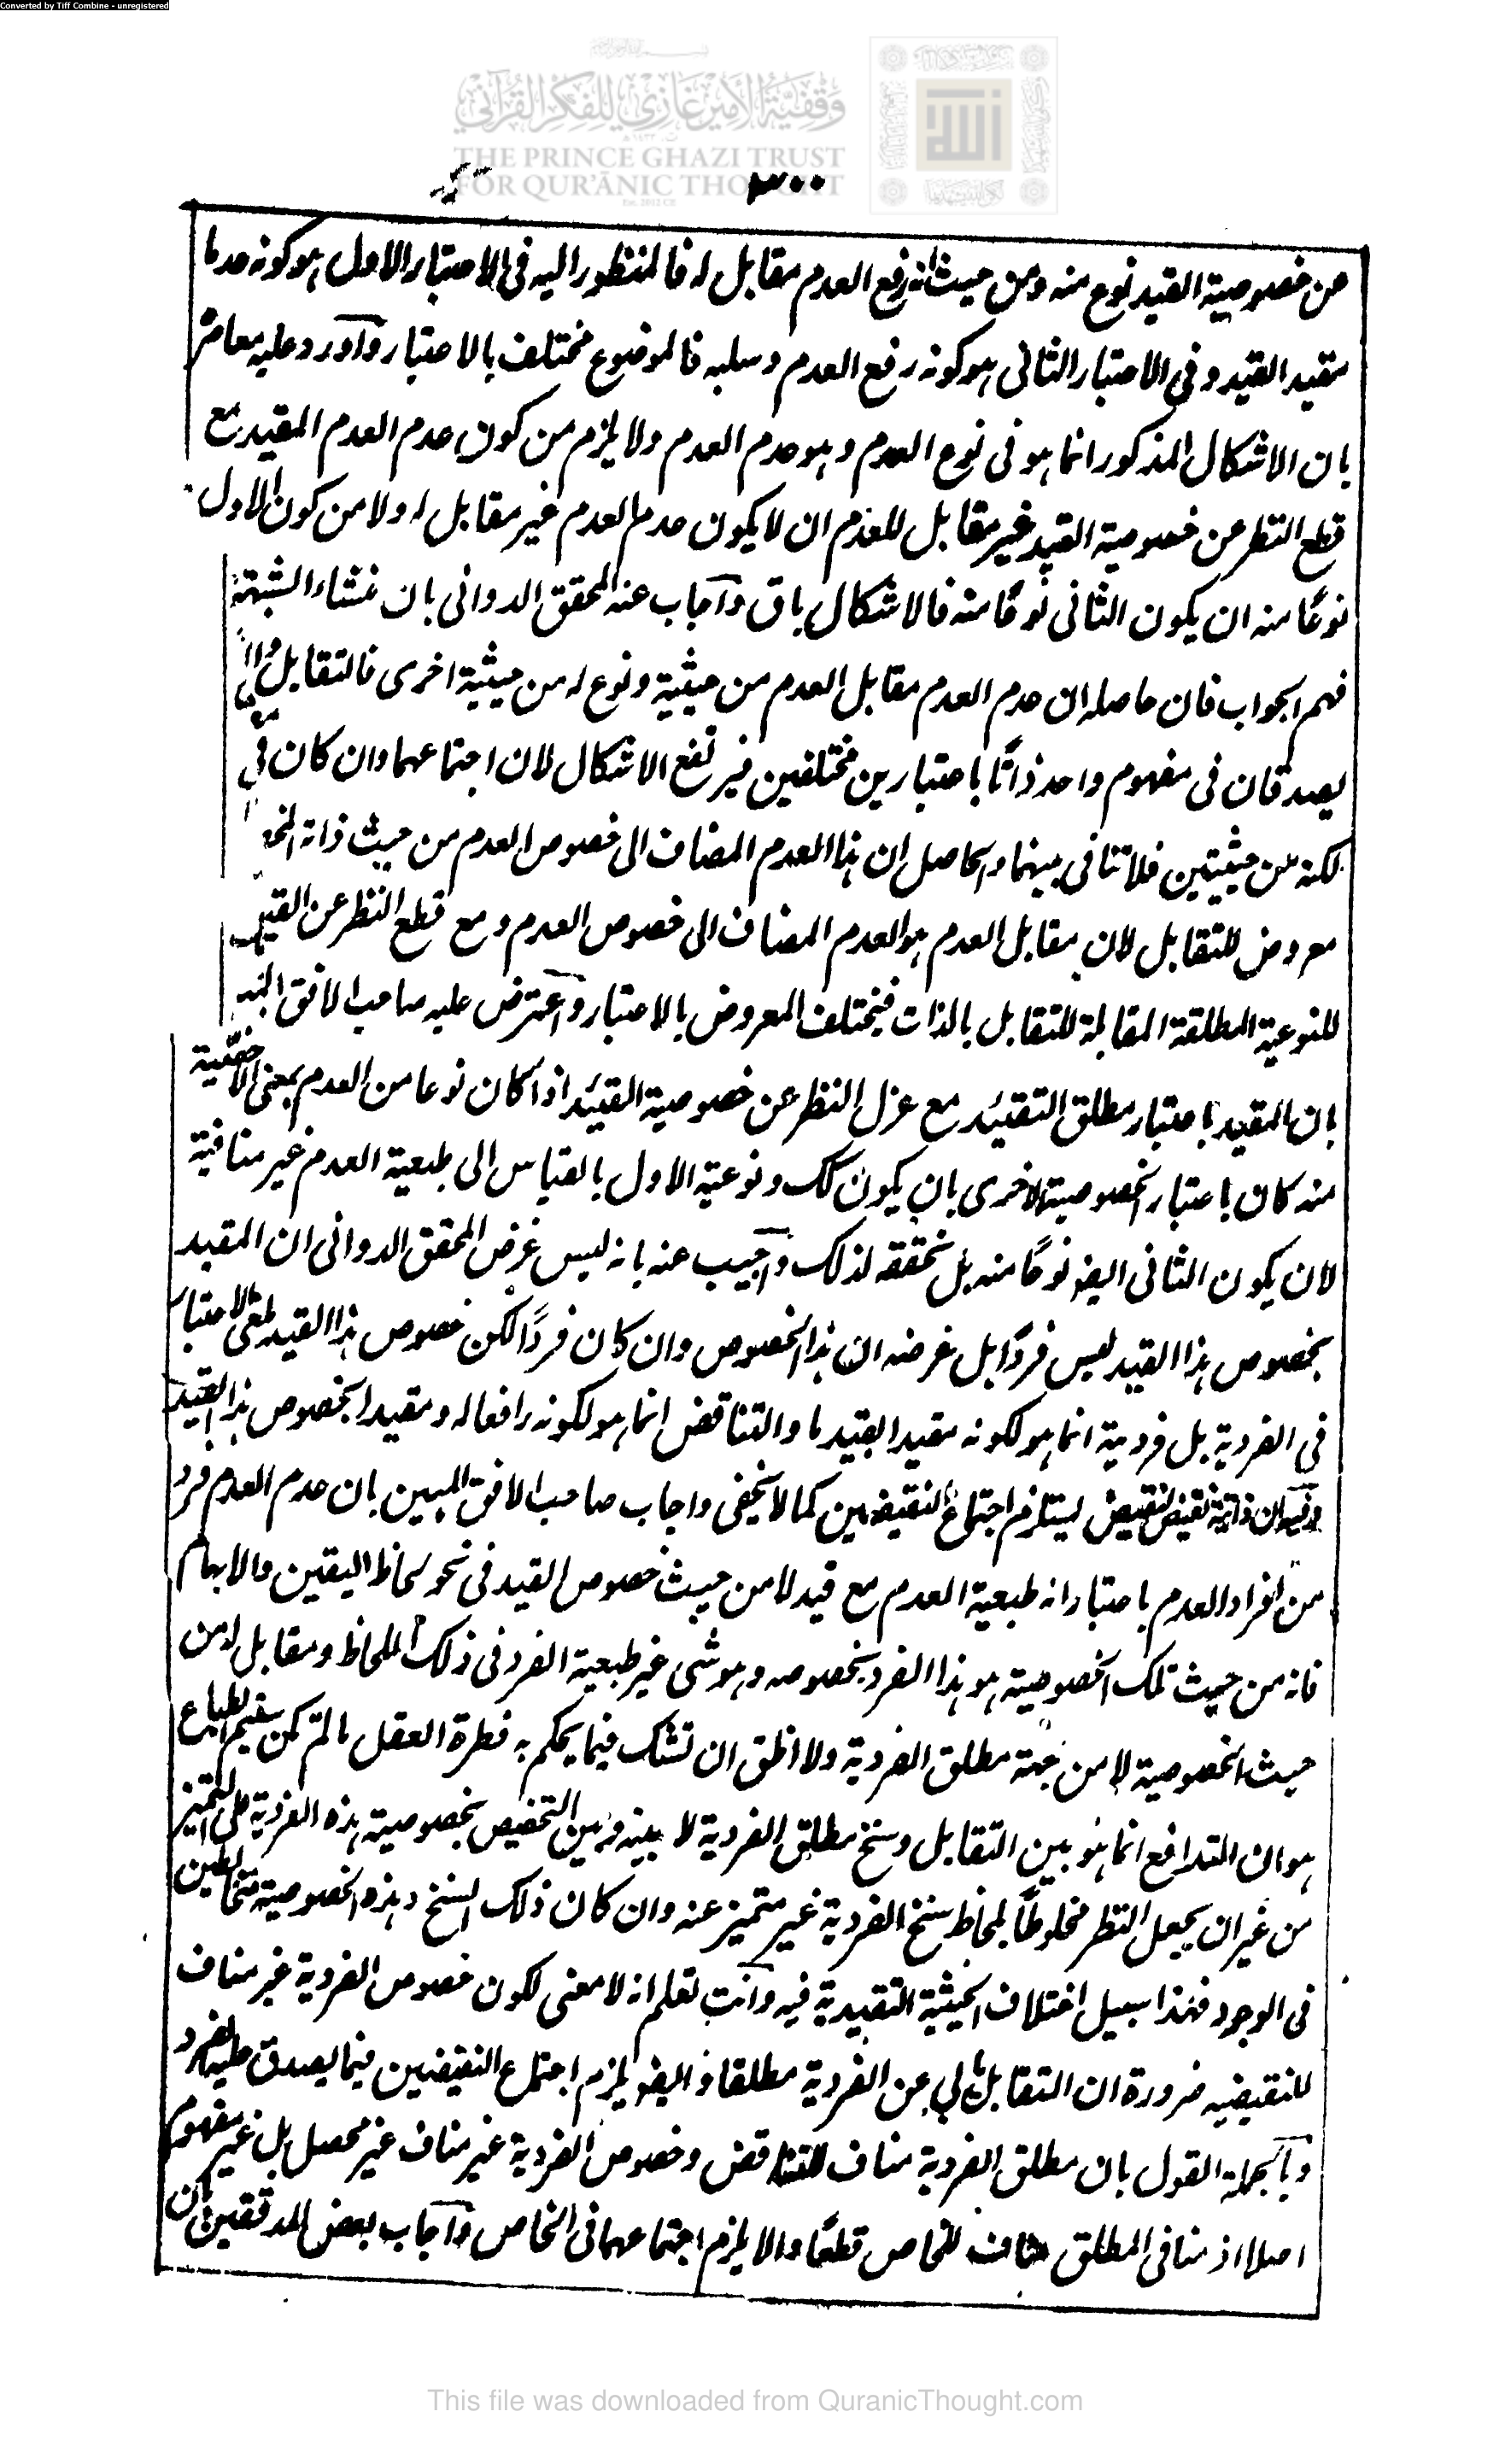 Converted by Tiff Combine - unregistered
وقفية الأمير غازي للفكر القرآني
THE PRINCE GHAZI TRUST
FOR QUR'ĀNIC THOUGHT
٣٠٠
عن خصوصية القيد نوع منه ومن حيث انه رفع العدم مقابل له فالمنظور اليه فى الاعتبار الاول هو كونه عدما
مقيد القيد وفى الاعتبار الثانى هو كونه رفع العدم وسلبه فالموضوع مختلف بالاعتبار واورد عليه معاصر
بان الاشكال المذكور انما هو فى نوع العدم وهو عدم العدم ولا يلزم من كون عدم العدم المقيد مع
قطع النظر عن خصوصية القيد غير مقابل للعدم ان لا يكون عدم العدم غير مقابل له ولا من كون الاول
نوعًا منه ان يكون الثانى نوعًا منه فالاشكال باق واجاب عنه المحقق الدوانى بان منشاء الشبهة
فهم الجواب فان حاصله ان عدم العدم مقابل العدم من حيثية ونوع له من حيثية اخرى فالتقابل
يصدقان فى مفهوم واحد ذاتًا باعتبارين مختلفين فيرتفع الاشكال لان اجتماعهما وان كان فى
لكنه من حيثيتين فلا تنافى بينهما والحاصل ان هذا العدم المضاف الى خصوص العدم من حيث ذاته
معروض للتقابل لان مقابل العدم هو العدم المضاف الى خصوص العدم ومع قطع النظر عن القيد
للنوعية المطلقة المقابلة للتقابل بالذات فيختلف المعروض بالاعتبار واعترض عليه صاحب الافق
بان المقيد باعتبار مطلق التقييد مع عزل النظر عن خصوصية القييد اذا كان نوعا من العدم بمعنى الاخصية
منه كان باعتبار الخصوصية الاخرى بان يكون كك ونوعية الاول بالقياس الى طبعية العدم غير منافية
لان يكون الثانى ايضا نوعًا منه بل تحققه لذلك واجيب عنه بانه ليس غرض المحقق الدوانى ان المقيد
بخصوص هذا القيد ليس فردًا بل غرضه ان هذا الخصوص وان كان فردًا لكن خصوص هذا القيد ملغى الاعتبار
فى الفردية بل فردية انما هو لكونه مقيدا بقيد ما والتناقض انما هو لكونه رافعا له ومقيدا بخصوص هذا القيد
وفيه ان ذاتية نقيض لنقيض يستلزم اجتماع النقيضين كما لا يخفى واجاب صاحب الافق المبين بان عدم العدم فرد
من افراد العدم باعتبار انه طبعية العدم مع قيد لا من حيث خصوص القيد فى نحو لحاظ اليقين والابهام
فانه من حيث تلك الخصوصية هو هذا الفرد بخصوصه وهو شى غير طبعية الفرد فى ذلك اللحاظ ومقابل له من
حيث الخصوصية لا من جهة مطلق الفردية ولا اظن ان تشك فيما يحكم به فطرة العقل ما لم تكن سقيم الطباع
هو ان التدافع انما هو بين التقابل وسنخ مطلق الفردية لا بينه وبين التخصيص بخصوصية هذه الفردية على التميز
من غير ان يجعل النظر مخلوطًا بلحاظ سنخ الفردية غير متميز عنه وان كان ذلك السنخ وهذه الخصوصية متخالطين
فى الوجود فهذا سبيل اختلاف الحيثية التقييدية فيه وانت تعلم انه لا معنى لكون خصوص الفردية غير مناف
للنقيضيه ضرورة ان التقابل يابى عن الفردية مطلقا وايضا يلزم اجتماع النقيضين فيما يصدق عليه الفرد
وبالجملة القول بان مطلق الفردية مناف للتناقض وخصوص الفردية غير مناف غير محصل بل غير مفهوم
اصلا اذ منافى المطلق مناف للخاص قطعًا والا يلزم اجتماعهما فى الخاص واجاب بعض المدققين بان
This file was downloaded from QuranicThought.com